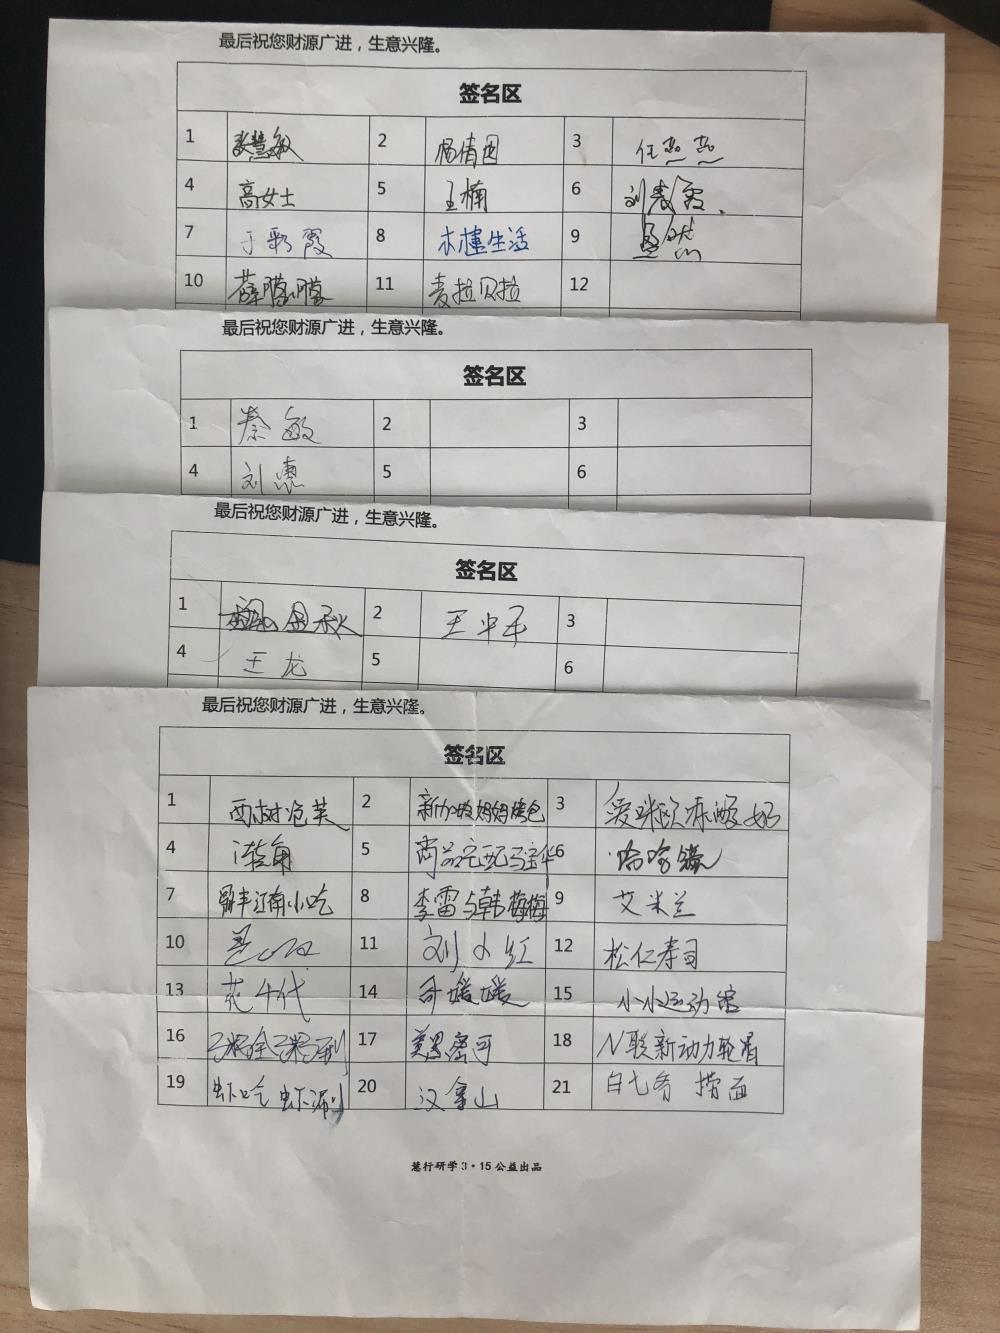 最后祝您财源广进，生意兴隆。
签名区
1 张慧敏 2 杨倩茵 3 任燕燕
4 高女士 5 王楠 6 刘素霞
7 于彩霞 8 木槿生活 9
10 薛朦朦 11 麦拉贝拉 12
最后祝您财源广进，生意兴隆。
签名区
1 秦敏 2 3
4 刘惠 5 6
最后祝您财源广进，生意兴隆。
签名区
1 金秋 2 王中军 3
4 王龙 5 6
最后祝您财源广进，生意兴隆。
签名区
1 西树泡芙 2 新加坡妈妈烤包 3 爱咪欧原酸奶
4 转角 5 尚品宅配 6 哈哈镜
7 鼎丰江南小吃 8 李雷与韩梅梅 9 艾米兰
10 11 刘小红 12 松仁寿司
13 花千代 14 乔媛媛 15 小小运动馆
16 17 美思蜜可 18 N联新动力轮滑
19 虾吃虾涮 20 汉拿山 21 白七爷 捞面
慧行研学3·15公益出品